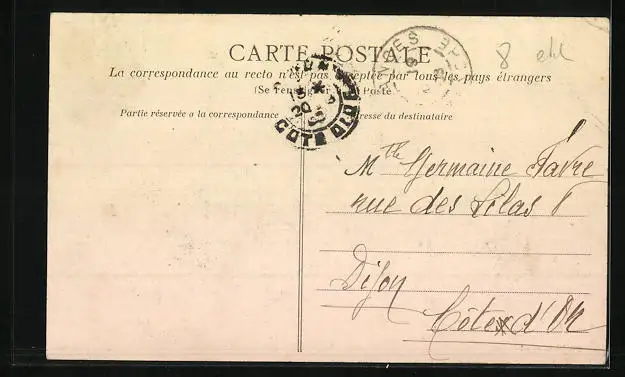 8
CARTE POSTALE
La correspondance au recto n'est pas acceptée par tous les pays étrangers
(Se renseigner Poste
Partie réservée a la correspondance
Adresse du destinataire
COTE D'OR
Mlle Germaine Favre
rue des Lilas
Dijon
Côte d'Or